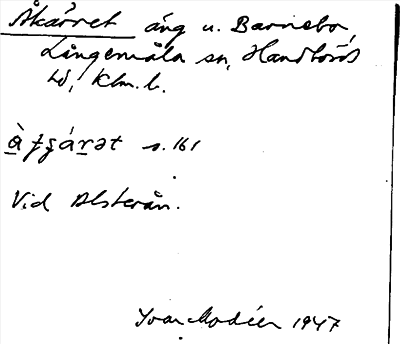 Åkärret äng u. Barnebo,
Långemåla sn, Handbörds
hd, Klm. l.
s. 161
Vid Alsterån.
Ivar Modéer 1947